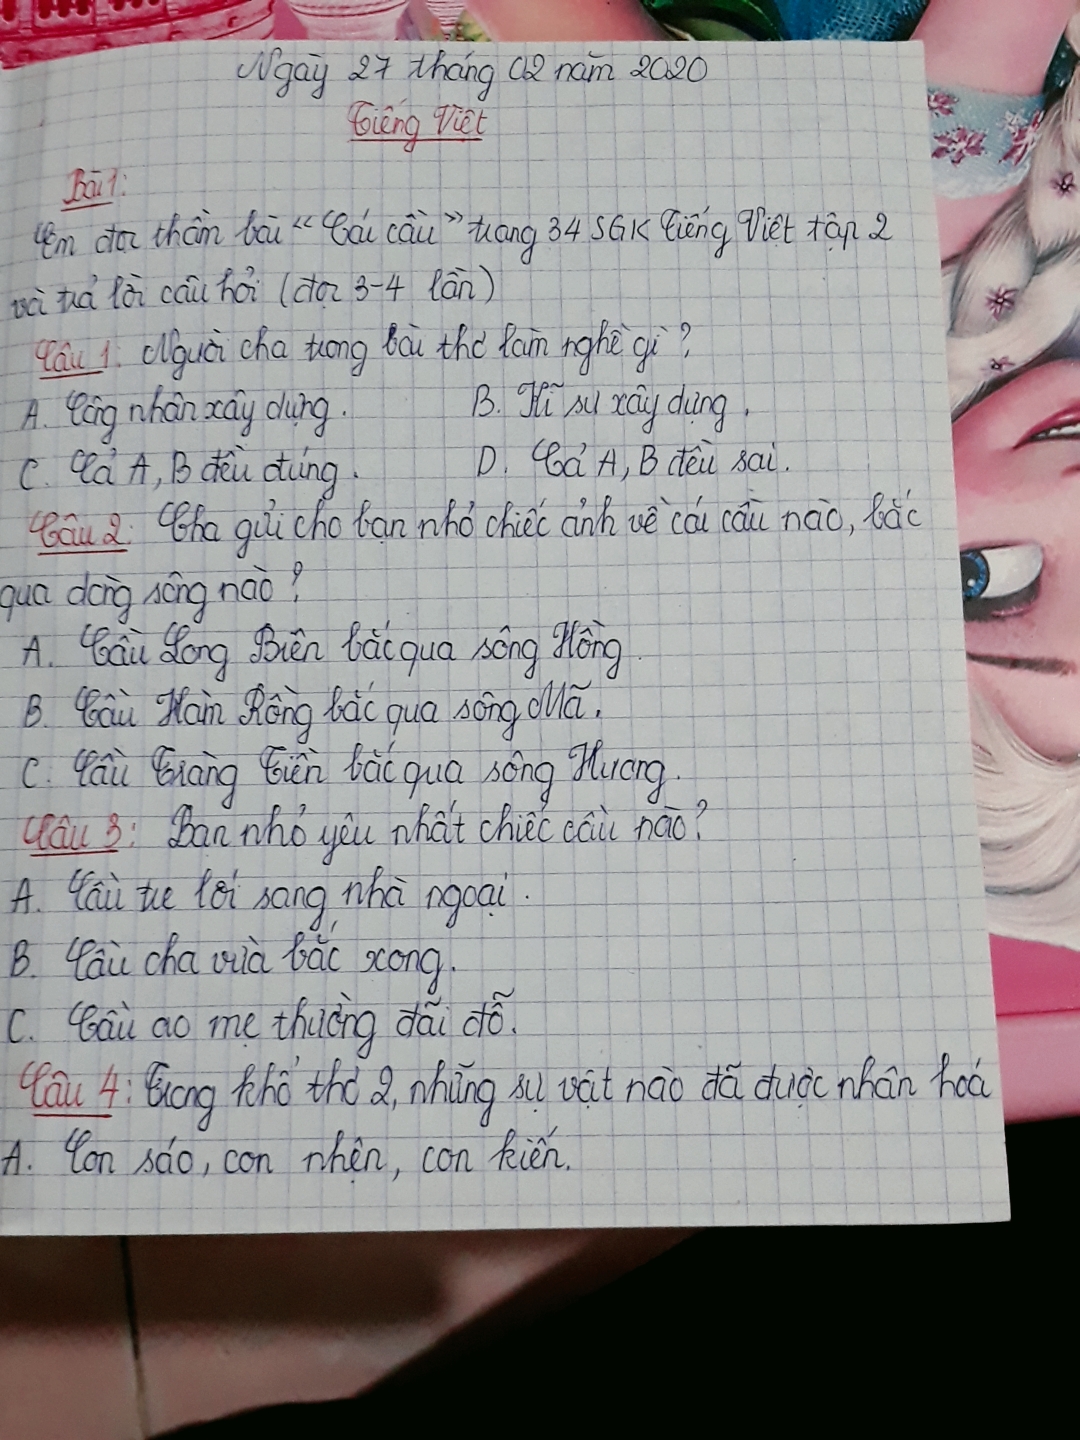 Ngày 27 tháng 02 năm 2020
Tiếng Việt
Bài 1:
Em đọc thầm bài “Cái cầu” trang 34 SGK Tiếng Việt tập 2
và trả lời câu hỏi (đọc 3-4 lần)
Câu 1: Người cha trong bài thơ làm nghề gì?
A. Công nhân xây dựng. B. Kĩ sư xây dựng.
C. Cả A, B đều đúng. D. Cả A, B đều sai.
Câu 2: Cha gửi cho bạn nhỏ chiếc ảnh về cái cầu nào, bắc
qua dòng sông nào?
A. Cầu Long Biên bắc qua sông Hồng.
B. Cầu Hàm Rồng bắc qua sông Mã.
C. Cầu Tràng Tiền bắc qua sông Hương.
Câu 3: Bạn nhỏ yêu nhất chiếc cầu nào?
A. Cầu tre lối sang nhà ngoại.
B. Cầu cha vừa bắc xong.
C. Cầu ao mẹ thường đãi đỗ.
Câu 4: Trong khổ thơ 2, những sự vật nào đã được nhân hoá
A. Con sáo, con nhện, con kiến.